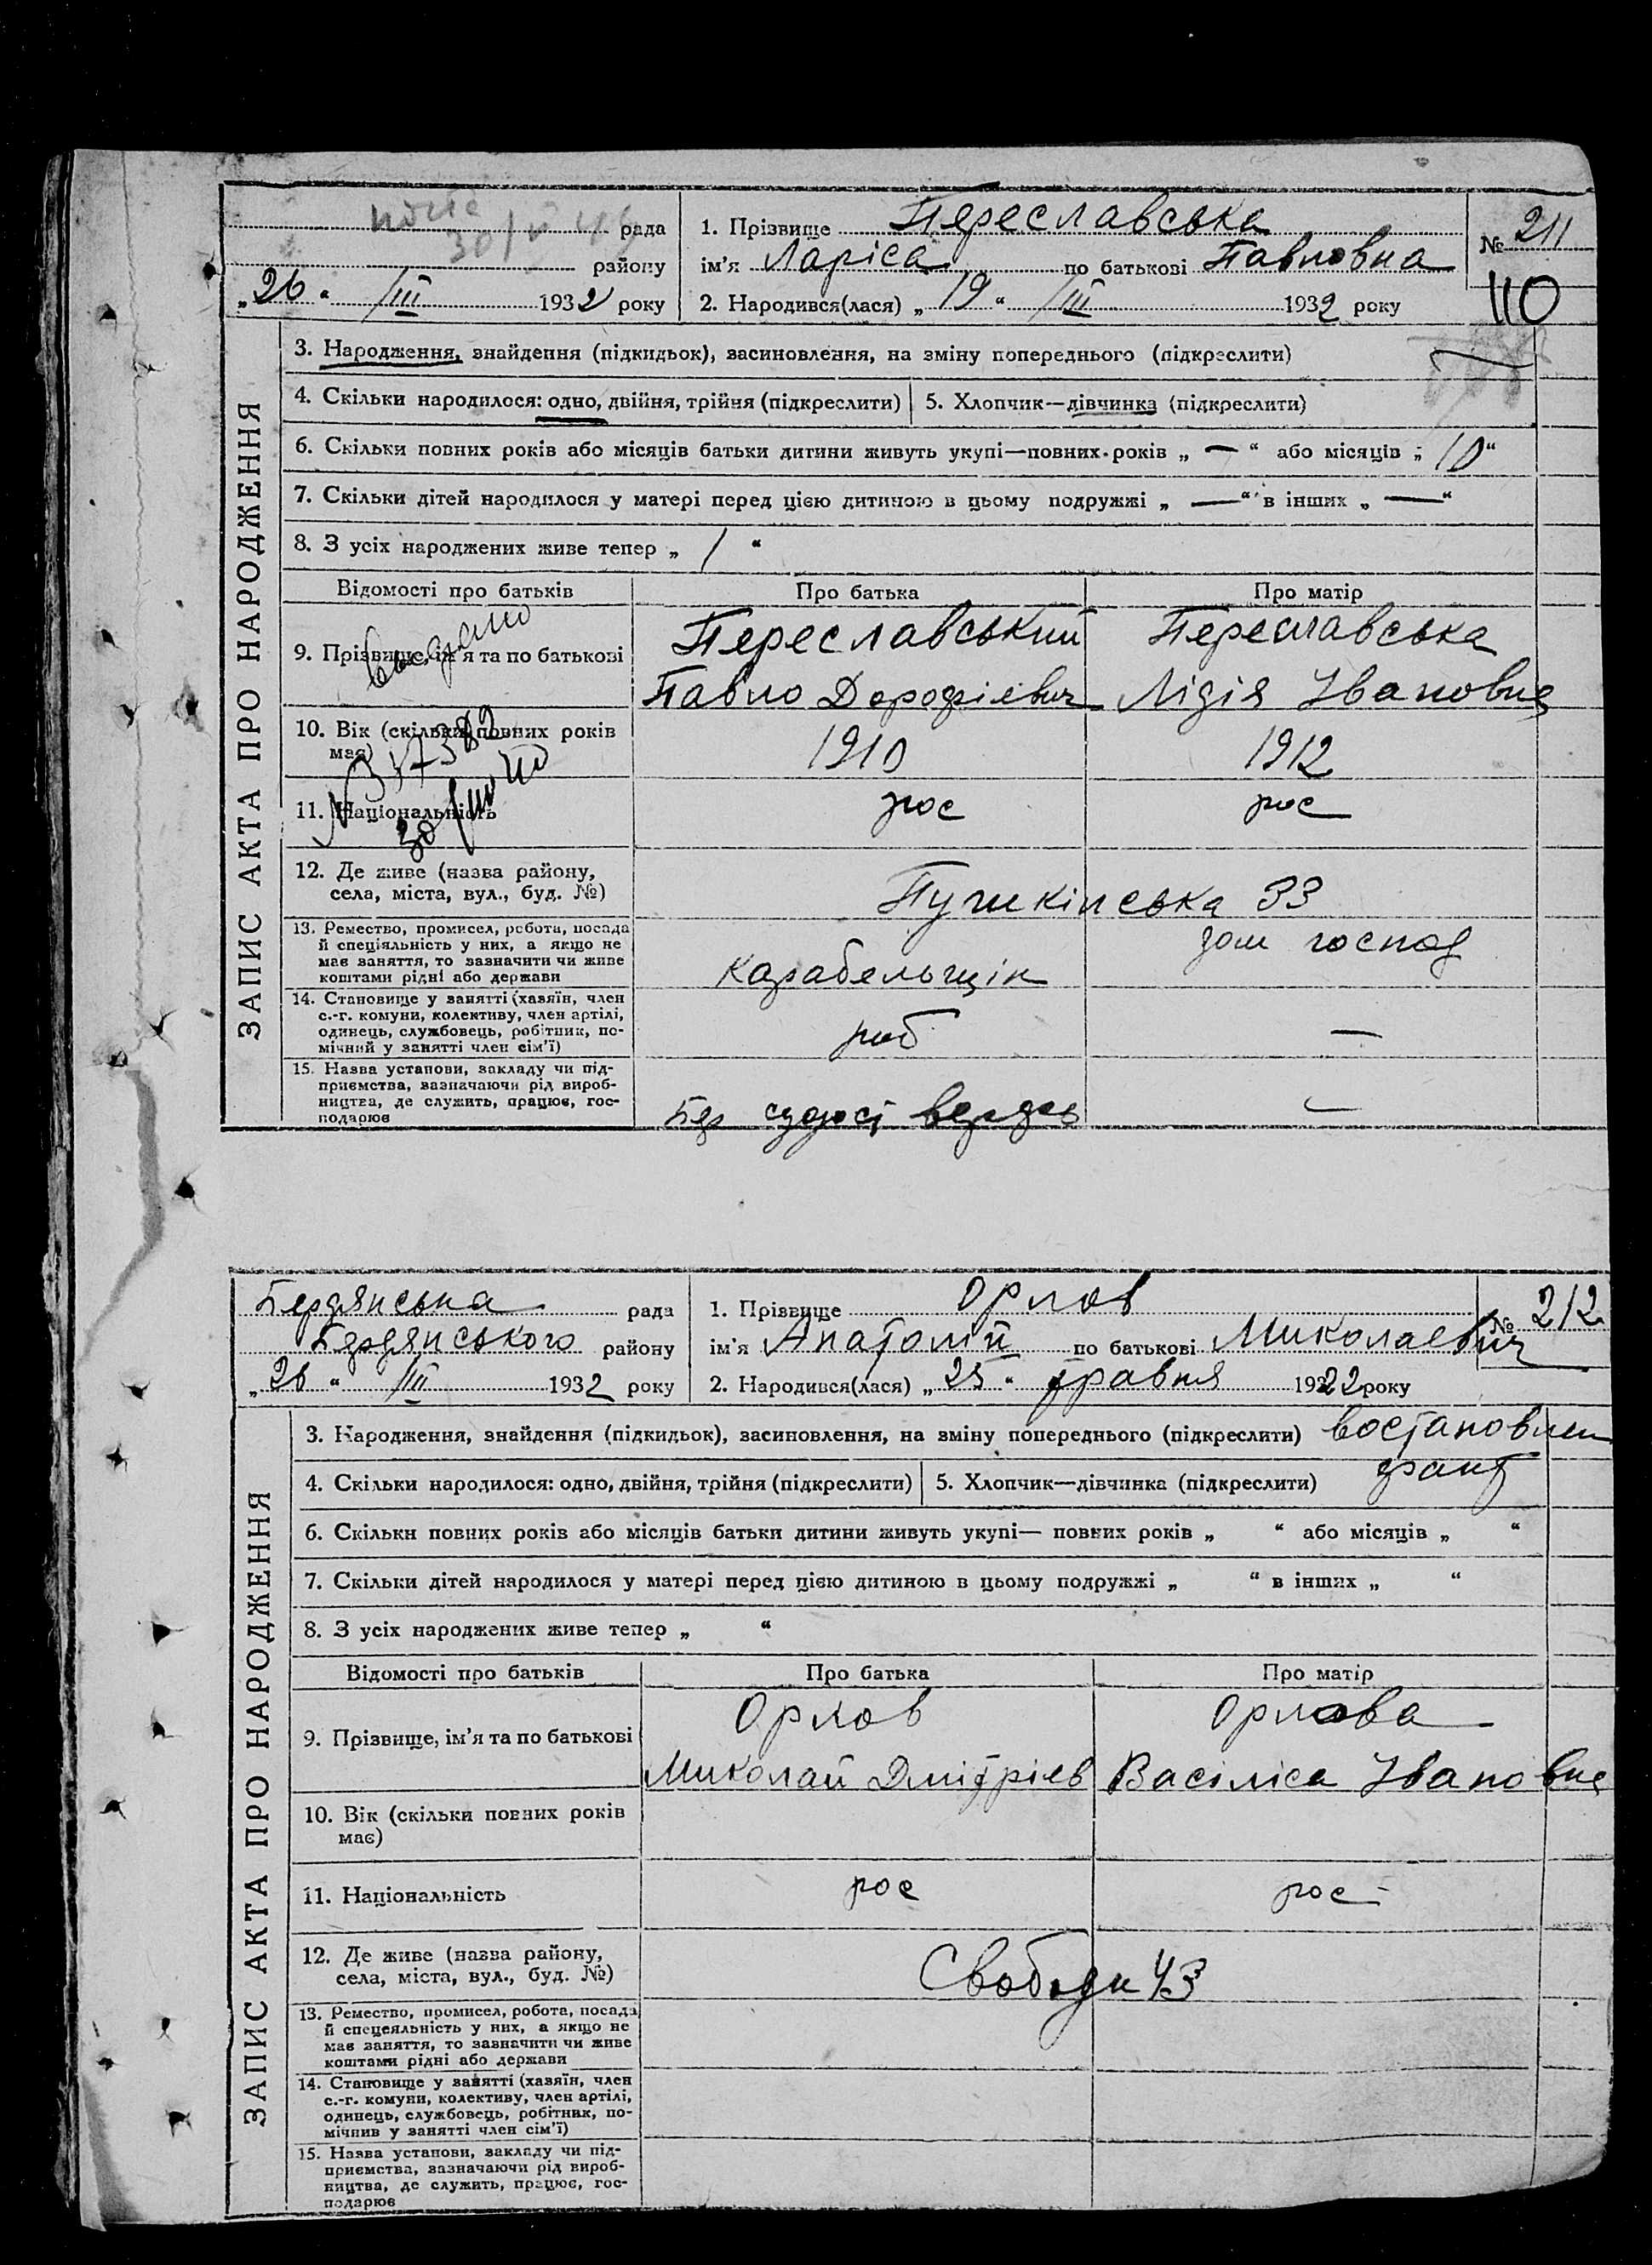 рада
1. Прізвище Переславська
№ 211
району
ім'я Ларіса по батькові Павловна
„26“ /III 1932 року
2. Народився(лася) „19“ /III 1932 року
110
ЗАПИС АКТА ПРО НАРОДЖЕННЯ
3. Народження, знайдення (підкидьок), засиновлення, на зміну попереднього (підкреслити)
4. Скільки народилося: одно, двійня, трійня (підкреслити)
5. Хлопчик—дівчинка (підкреслити)
6. Скільки повних років або місяців батьки дитини живуть укупі—повних років „ — “ або місяців „ 10 “
7. Скільки дітей народилося у матері перед цією дитиною в цьому подружжі „ — “ в інших „ — “
8. З усіх народжених живе тепер „ 1 “
Відомості про батьків
Про батька
Про матір
9. Прізвище, ім'я та по батькові
Переславський
Павло Дорофієвич
Переславська
Лідія Івановна
10. Вік (скільки повних років
має)
1910
1912
11. Національність
рос
рос
12. Де живе (назва району,
села, міста, вул., буд. №)
Пушкінська 33
13. Ремество, промисел, робота, посада
й спеціяльність у них, а якщо не
має заняття, то зазначити чи живе
коштами рідні або держави
карабельщік
дом господ
14. Становище у занятті (хазяїн, член
с.-г. комуни, колективу, член артілі,
одинець, службовець, робітник, по-
мічний у занятті член сім'ї)
роб
—
15. Назва установи, закладу чи під-
приємства, зазначаючи рід вироб-
ництва, де служить, працює, гос-
подарює
—
Бердянська рада
1. Прізвище Орлов
№ 212
Бердянського району
ім'я Анатолій по батькові Миколаевич
„26“ /III 1932 року
2. Народився(лася) „25“ травня 1922 року
ЗАПИС АКТА ПРО НАРОДЖЕННЯ
3. Народження, знайдення (підкидьок), засиновлення, на зміну попереднього (підкреслити) востановлен
4. Скільки народилося: одно, двійня, трійня (підкреслити)
5. Хлопчик—дівчинка (підкреслити)
6. Скільки повних років або місяців батьки дитини живуть укупі— повних років „ “ або місяців „ “
7. Скільки дітей народилося у матері перед цією дитиною в цьому подружжі „ “ в інших „ “
8. З усіх народжених живе тепер „ “
Відомості про батьків
Про батька
Про матір
9. Прізвище, ім'я та по батькові
Орлов
Миколай Дмітрієв
Орлова
Васіліса Івановна
10. Вік (скільки повних років
має)
11. Національність
рос
рос
12. Де живе (назва району,
села, міста, вул., буд. №)
Свободи 43
13. Ремество, промисел, робота, посада
й спецеяльність у них, а якщо не
має заняття, то зазначити чи живе
коштами рідні або держави
14. Становище у занятті (хазяїн, член
с.-г. комуни, колективу, член артілі,
одинець, службовець, робітник, по-
мічнив у занятті член сім'ї)
15. Назва установи, закладу чи під-
приємства, зазначаючи рід вироб-
ництва, де служить, працює, гос-
подарює